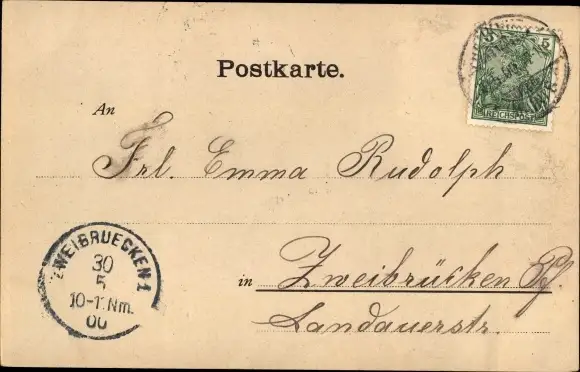 Postkarte.
5
REICHSPOST
An
Frl. Emma Rudolph
ZWEIBRUECKEN 1
30
5
10-11 Nm.
00
in Zweibrücken Pf
Landauerstr.